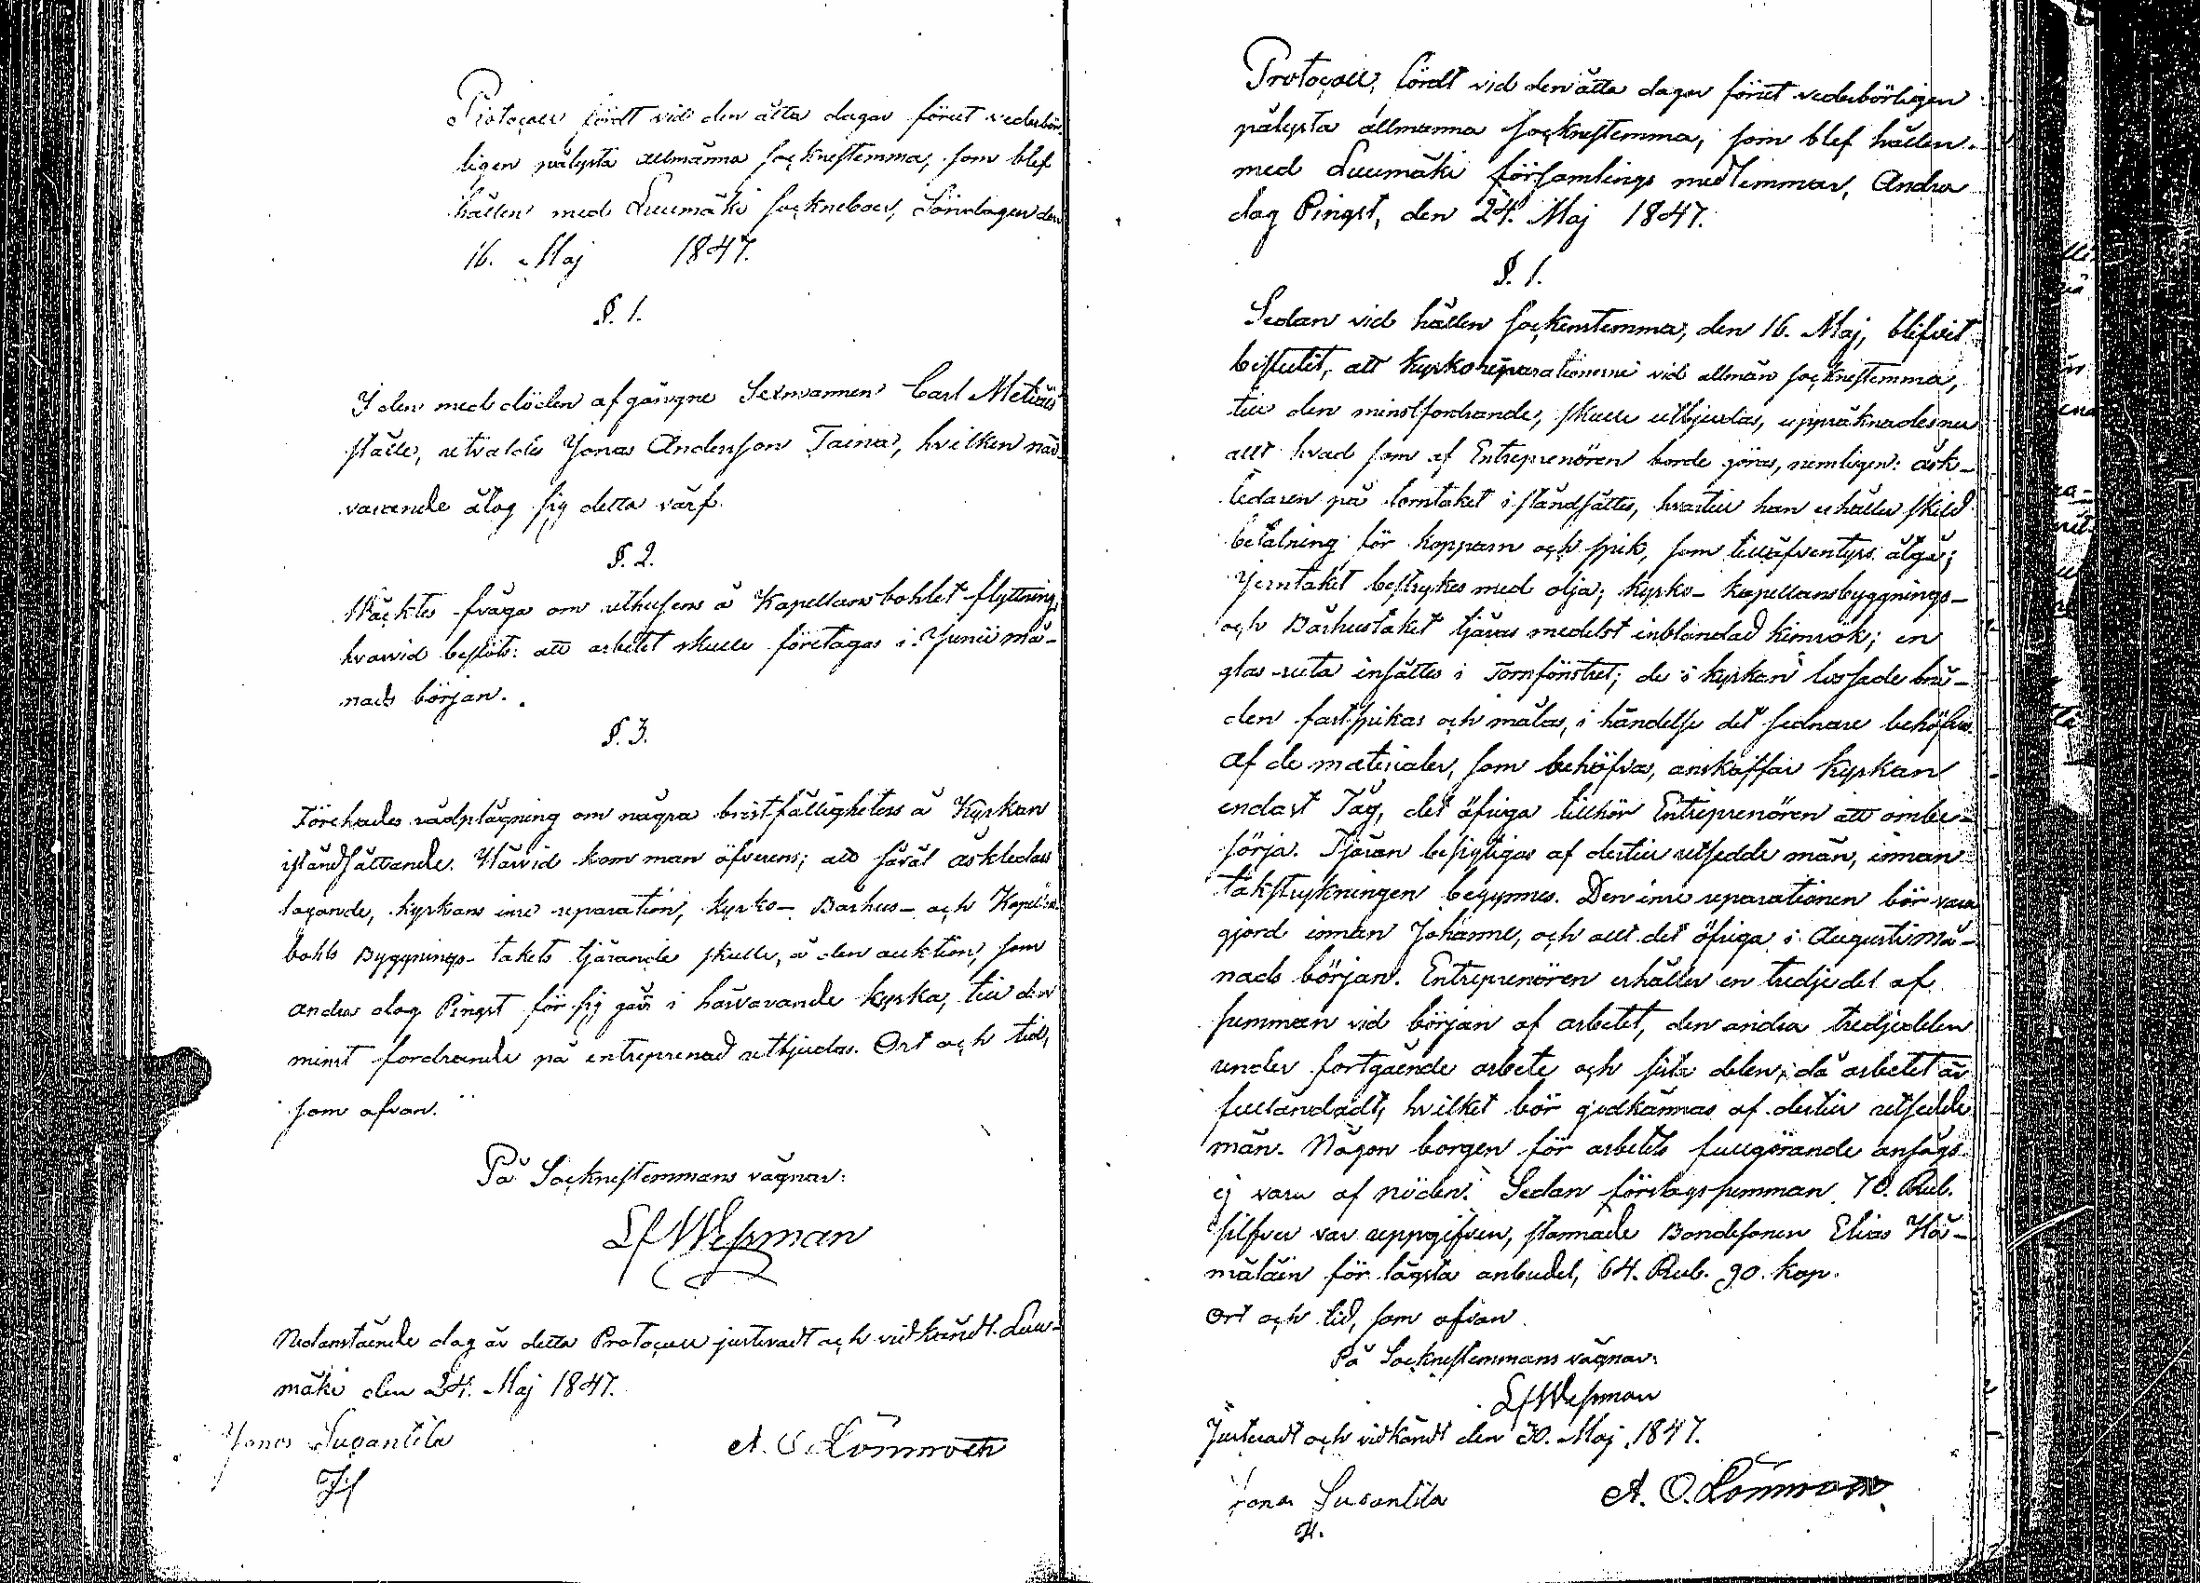 Protocoll fördt vid den åtta dagar förut vederbör-
ligen pålysta allmänna Sockenstemma, som blef
hållen med Luumäki Sockneboer, Söndagen den
16. Maj 1847.
§. 1.
I den med döden afgångne Sexmannen Carl
ställe, utvaldes Jonas Andersson Taina, hvilken när-
varande åtog sig detta värf.
§. 2.
Väcktes fråga om uthusens å Kapellansbohlet flyttning,
hvarvid beslöts: att arbetet skulle företagas i Junii må-
nads början.
§. 3.
Förehades rådplägning om några bristfälligheters å Kyrkan
iståndsättande. Härvid kom man öfverens; att såväl åskledars
lagande, kyrkans inre reparation, kyrko- Bårhus- och
bohls Byggnings- takets tjärande skulle, å den auktion, som
andra dag Pingst för sig går i härvarande kyrka, till den
minst fordrande på entreprenad utbjudas. Ort och tid,
som ofvan.
På Socknestemmans vägnar:
Wessman
Nedanstående dag är detta Protocoll justeradt och vidkändt. Luu-
mäki den 24. Maj 1847.
Jonas Sucantila
A. O. Lönnroth
Protocoll, fördt vid den åtta dagar förut vederbörligen
pålysta allmänna Socknestemma, som blef hållen
med Luumäki församlings medlemmar, Andra
dag Pingst, den 24. Maj 1847.
§. 1.
Sedan vid hållen Sockenstemma, den 16. Maj, blifvit
beslutit, att kyrkoreparationerne vid allmän Socknestemma,
till den minstfordrande, skulle utbjudas, uppräknades nu
allt hvad som af Entreprenören borde göras, nemligen: åsk-
ledaren på torntaket i ståndsättes, hvartill han erhåller skild
betalning för kopparn och spik, som tilläfventyrs åtgå;
Jerntaket bestrykes med olja; kyrko- Kapellansbyggnings-
och Bårhustaket tjäras medelst inblandad kimrök; en
glas-ruta insättes i Tornfönstret; de i kyrkan lossade brä-
den fastspikas och målas, i händelse det sednare behöfves.
Af de materialer, som behöfva, anskaffar Kyrkan
endast Tåg, det öfriga tillhör Entreprenören att ombe-
sörja. Tjäran besigtigas af dertill utsedde män, innan
takstrykningen begynnes. Den inre reparationen bör vara
gjord innan Johanne, och allt det öfriga i Augusti må-
nads början. Entreprenören erhåller en tredjedel af
summan vid början af arbetet, den andra tredjedelen
under fortgående arbete och sista delen, då arbetet är
fulländadt, hvilket bör godkännas af dertill utsedde
män. Någon borgen för arbetets fullgörande ansågs
ej vara af nöden. Sedan förslagssumman 70. Rub.
silfver var uppgifven, stannade Bondesonen Elias Hä-
mäläin för lägsta anbudet, 64. Rub. 90. kop.
Ort och tid, som ofvan.
På Socknestemmans vägnar:
Wessman
Justeradt och vidkändt den 30. Maj 1847.
Jonas Sucantila
A. O. Lönnroth